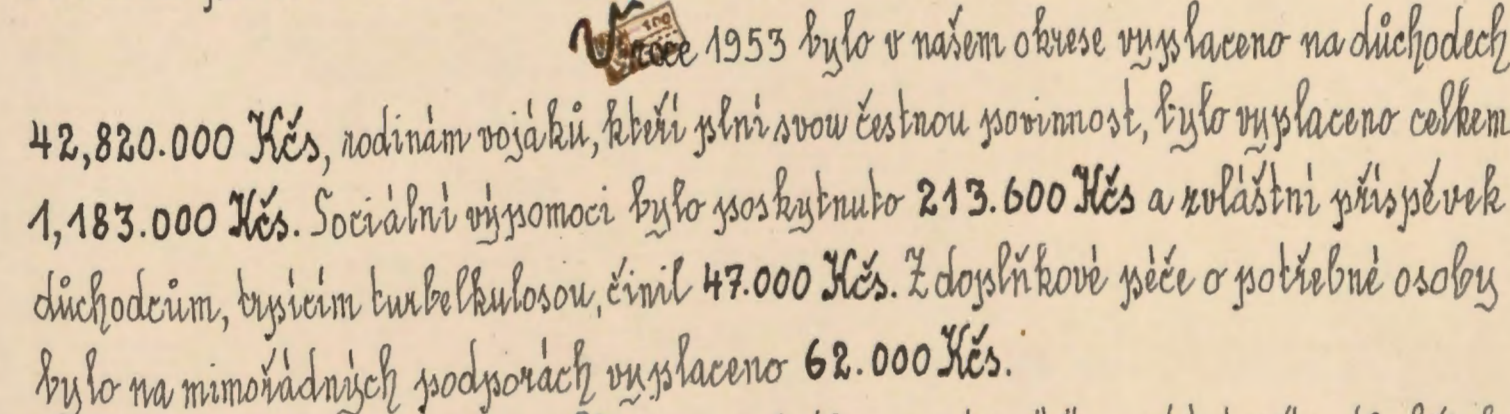 V roce 1953 bylo v našem okrese vyplaceno na důchodech
42,820.000 Kčs, rodinám vojáků, kteří plní svou čestnou povinnost, bylo vyplaceno celkem
1,183.000 Kčs. Sociální výpomoci bylo poskytnuto 213.600 Kčs a zvláštní příspěvek
důchodcům, trpícím turbelkulosou, činil 47.000 Kčs. Z doplňkové péče o potřebné osoby
bylo na mimořádných podporách vyplaceno 62.000 Kčs.